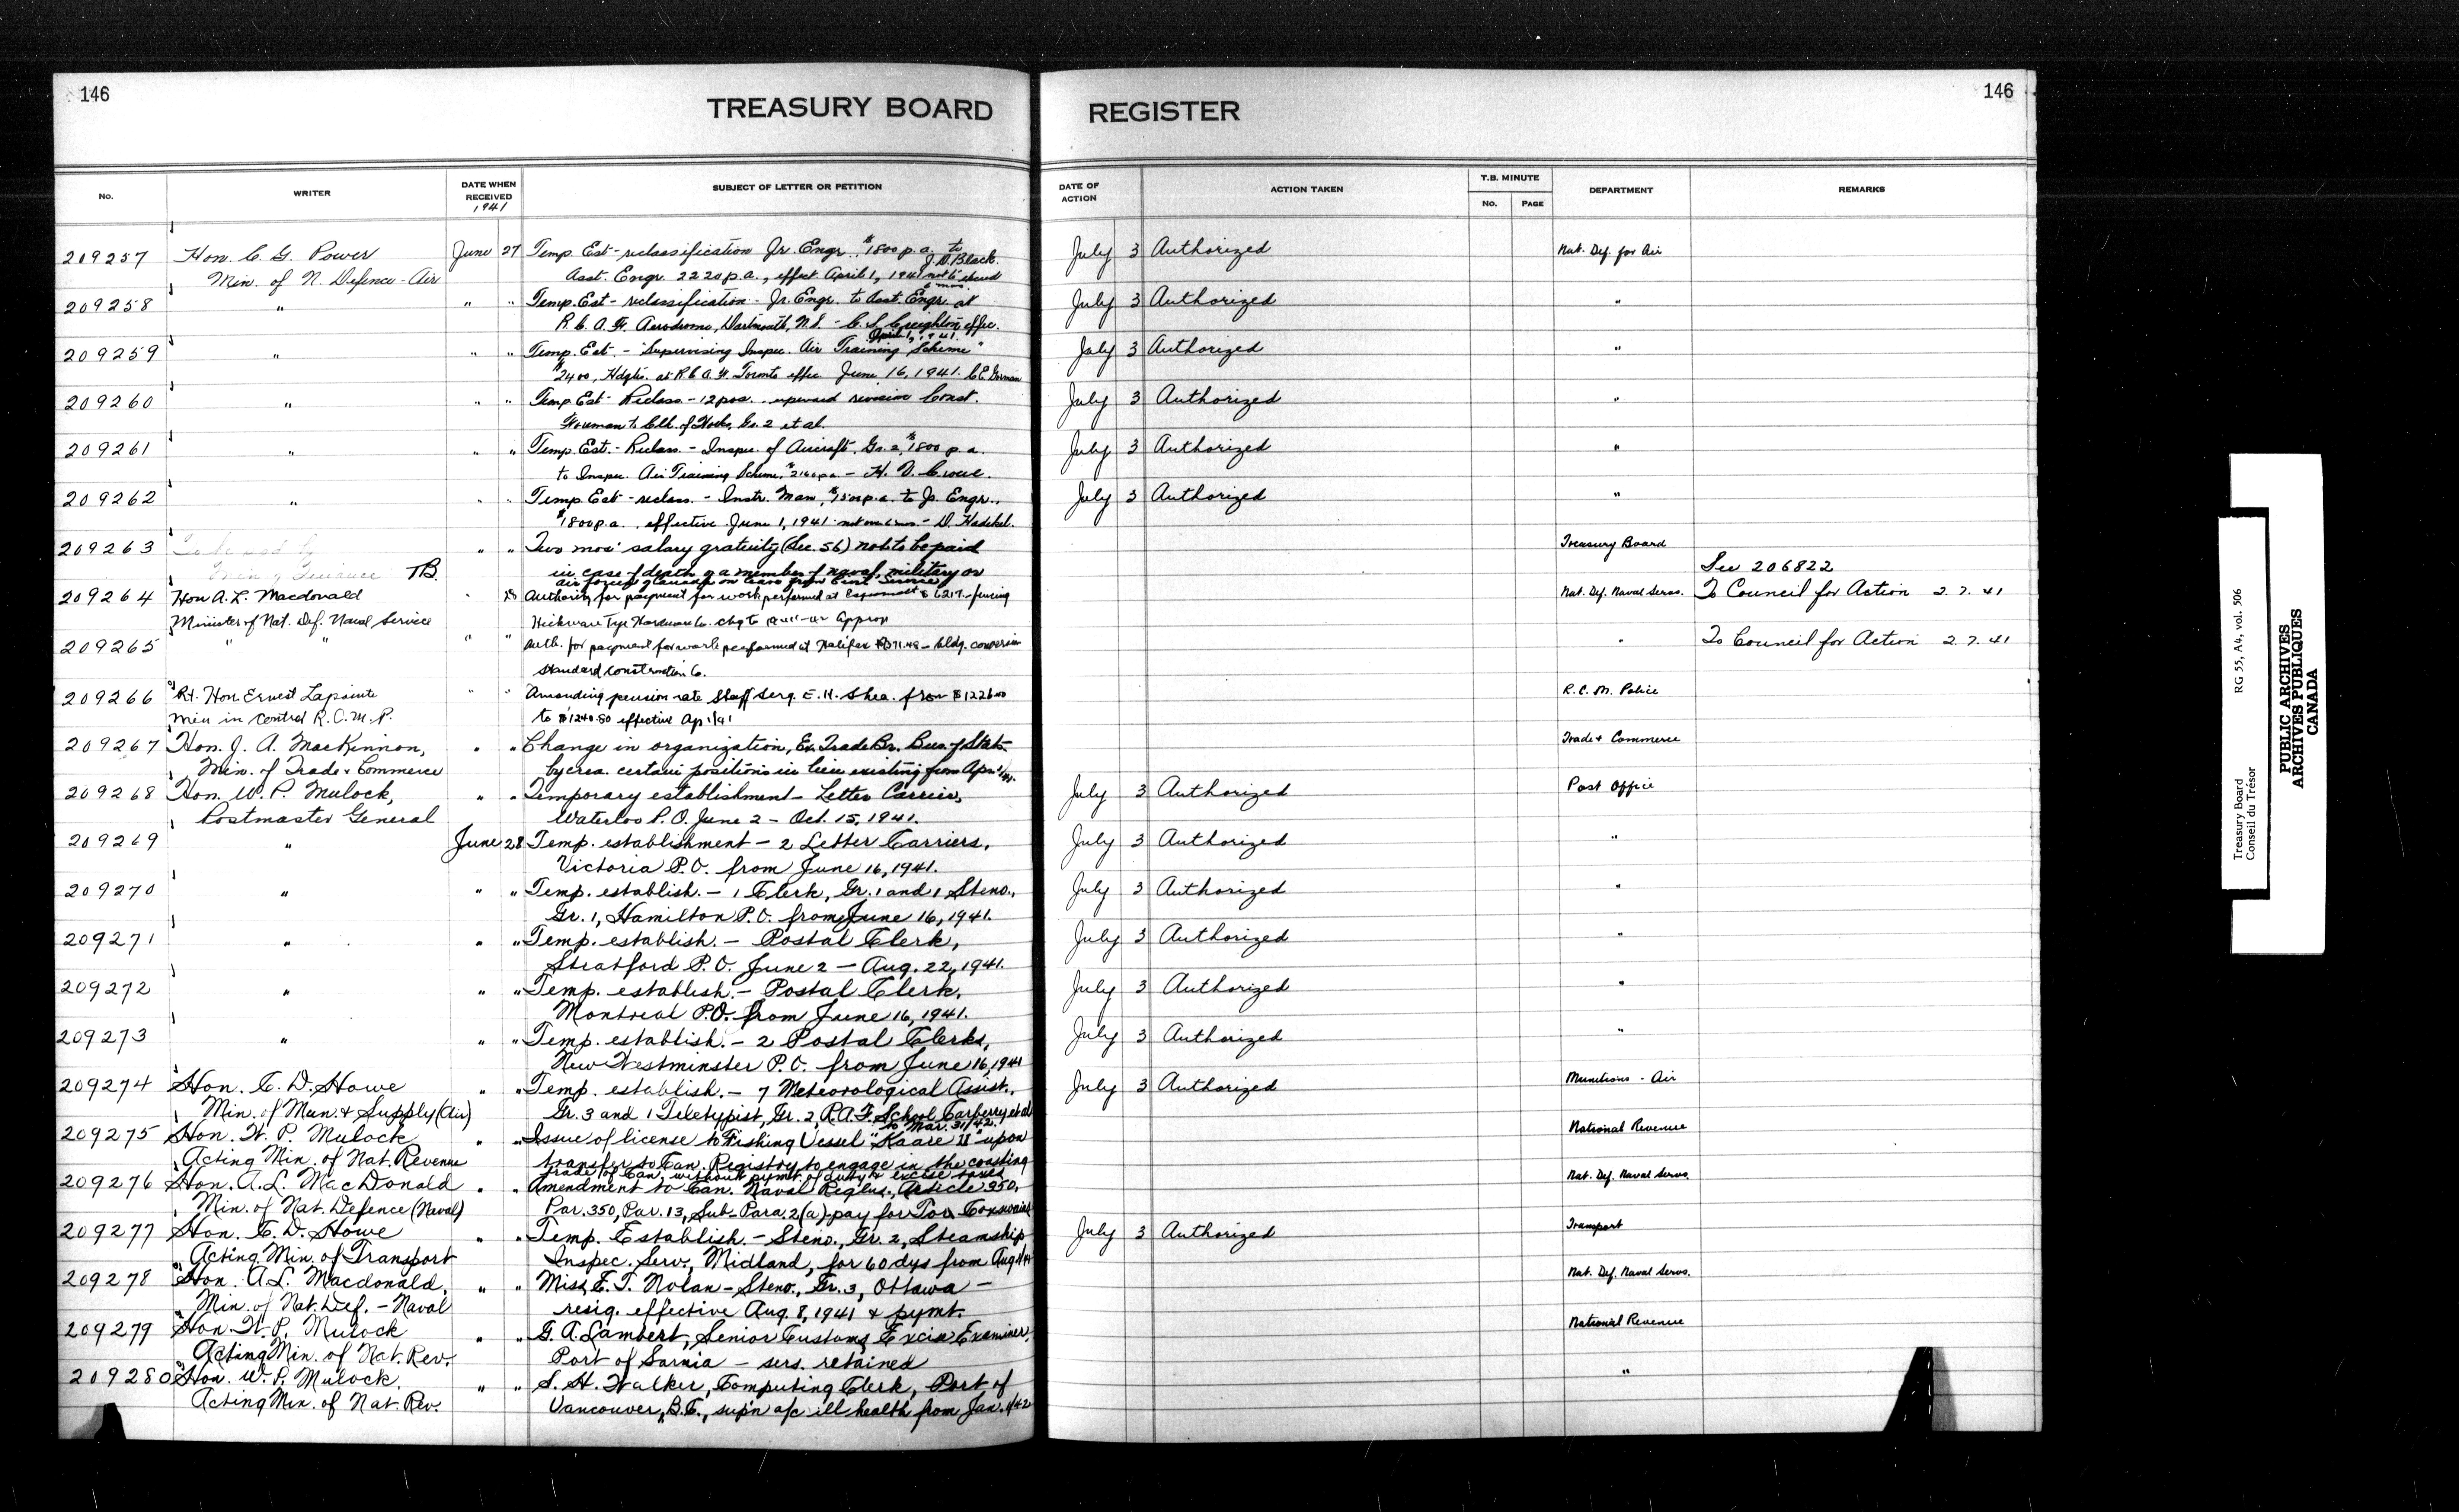 146
TREASURY BOARD
REGISTER
146
No.
WRITER
DATE WHEN RECEIVED
1941
SUBJECT OF LETTER OR PETITION
DATE OF ACTION
ACTION TAKEN
T.B. MINUTE
No.
PAGE
DEPARTMENT
REMARKS
209257 Hon. C. G. Power June 27 Temp. Est - reclassification Jr. Engr. $1800 p.a. to J. D. Black. July 3 Authorized Nat. Def. for Air
Min. of N. Defence - Air Asst. Engr. 2220 p.a., effect. April 1, 1941 not to exceed 6 mos.
209258 " " " Temp. Est - reclassification - Jr. Engr. to Asst. Engr. at July 3 Authorized "
R.C.A.F. Aerodrome, Dartmouth, N.S. - C. S. Creighton effec. April 1, 1941.
209259 " " " Temp. Est. - "Supervising Inspec. Air Training Scheme" July 3 Authorized "
$2400, Hdqts. at R.C.A.F. Toronto effec. June 16, 1941. C.E. Gorman
209260 " " " Temp. Est - Reclass. - 12 pos. upward revision Const. July 3 Authorized "
Foreman to Clk. of Works, Gr. 2 et al.
209261 " " " Temp. Est. - Reclass. - Inspec. of Aircraft, Gr. 2, $1800 p.a. July 3 Authorized "
to Inspec. Air Training Scheme, $2160 p.a. - H. V. Crowe.
209262 " " " Temp. Est - reclass. - Instr. Man, $1500 p.a. to Jr. Engr., July 3 Authorized "
$1800 p.a., effective June 1, 1941 not over 6 mos. - D.
209263 " " Two mos' salary gratuity (Sec. 56) not to be paid Treasury Board
Min of Finance TB. in case of death of a member of naval, military or See 206822
air forces of Canada on leave from Civil Service
209264 Hon A. L. Macdonald " 28 Authority for payment for work performed at Esquimalt $6217. - fencing Nat. Def. Naval Servs. To Council for Action 2.7.41
Minister of Nat. Def. Naval Service Hickman Tye Hardware Co. chg to 1941-42 Approp
209265 " " " " Auth. for payment for work performed at Halifax - bldg. conversion " To Council for Action 2.7.41
Standard Construction Co.
209266 Rt. Hon Ernest Lapointe " " Amending pension rate Staff Serg. E. H. Shea. from $1226.00 R.C.M. Police
Min in Control R.C.M.P. to $1240.80 effective Ap 1/41
209267 Hon. J. A. MacKinnon, " " Change in organization, Ex. Trade Br. Bur. of Stat. Trade & Commerce
Min. of Trade & Commerce by crea. certain positions in lieu existing from Apr. 1/41.
209268 Hon. W. P. Mulock, " " Temporary establishment - Letter Carrier, July 3 Authorized Post Office
Postmaster General Waterloo P.O. June 2 - Oct. 15, 1941.
209269 " June 28 Temp. establishment - 2 Letter Carriers, July 3 Authorized "
Victoria P.O. from June 16, 1941.
209270 " " " Temp. establish. - 1 Clerk, Gr. 1 and 1 Steno., July 3 Authorized "
Gr. 1, Hamilton P.O. from June 16, 1941.
209271 " " " Temp. establish. - Postal Clerk, July 3 Authorized "
Stratford P.O. June 2 - Aug. 22, 1941.
209272 " " " Temp. establish. - Postal Clerk, July 3 Authorized "
Montreal P.O. from June 16, 1941.
209273 " " " Temp. establish. - 2 Postal Clerks, July 3 Authorized "
New Westminster P.O. from June 16, 1941
209274 Hon. C. D. Howe " " Temp. establish. - 7 Meteorological Assist., July 3 Authorized Munitions - Air
Min. of Mun. & Supply (Air) Gr. 3 and 1 Teletypist, Gr. 2, R.A.F. School, Carberry et al to Mar. 31/42.
209275 Hon. W. P. Mulock " " Issue of license to Fishing Vessel "Kaare II" upon National Revenue
Acting Min. of Nat. Revenue transfer to Can. Registry, to engage in the coasting
trade of Can. without pymt. of duty & excise taxes
209276 Hon. A. L. MacDonald " " Amendment to Can. Naval Reglns., Article 350, Nat. Def. Naval Servs.
Min. of Nat. Defence (Naval) Par. 350, Par. 13, Sub-Para. 2(a) - pay for Tor. Coxswains
209277 Hon. C. D. Howe " " Temp. Establish. - Steno., Gr. 2, Steamship July 3 Authorized Transport
Acting Min. of Transport Inspec. Serv., Midland, for 60 dys from Aug 1/41
209278 Hon. A. L. Macdonald, " " Miss E. T. Nolan - Steno., Gr. 3, Ottawa - Nat. Def. Naval Servs.
Min. of Nat. Def. - Naval resig. effective Aug. 8, 1941 & pymt.
209279 Hon W. P. Mulock " " G. A. Lambert, Senior Customs Excise Examiner, National Revenue
Acting Min. of Nat. Rev. Port of Sarnia - sers. retained
209280 Hon. W. P. Mulock, " " S. H. Walker, Computing Clerk, Port of "
Acting Min. of Nat. Rev. Vancouver, B.C., sup'n a/c ill health from Jan. 1/42
Treasury Board
Conseil du Trésor
RG 55, A4, vol. 506
PUBLIC ARCHIVES
ARCHIVES PUBLIQUES
CANADA